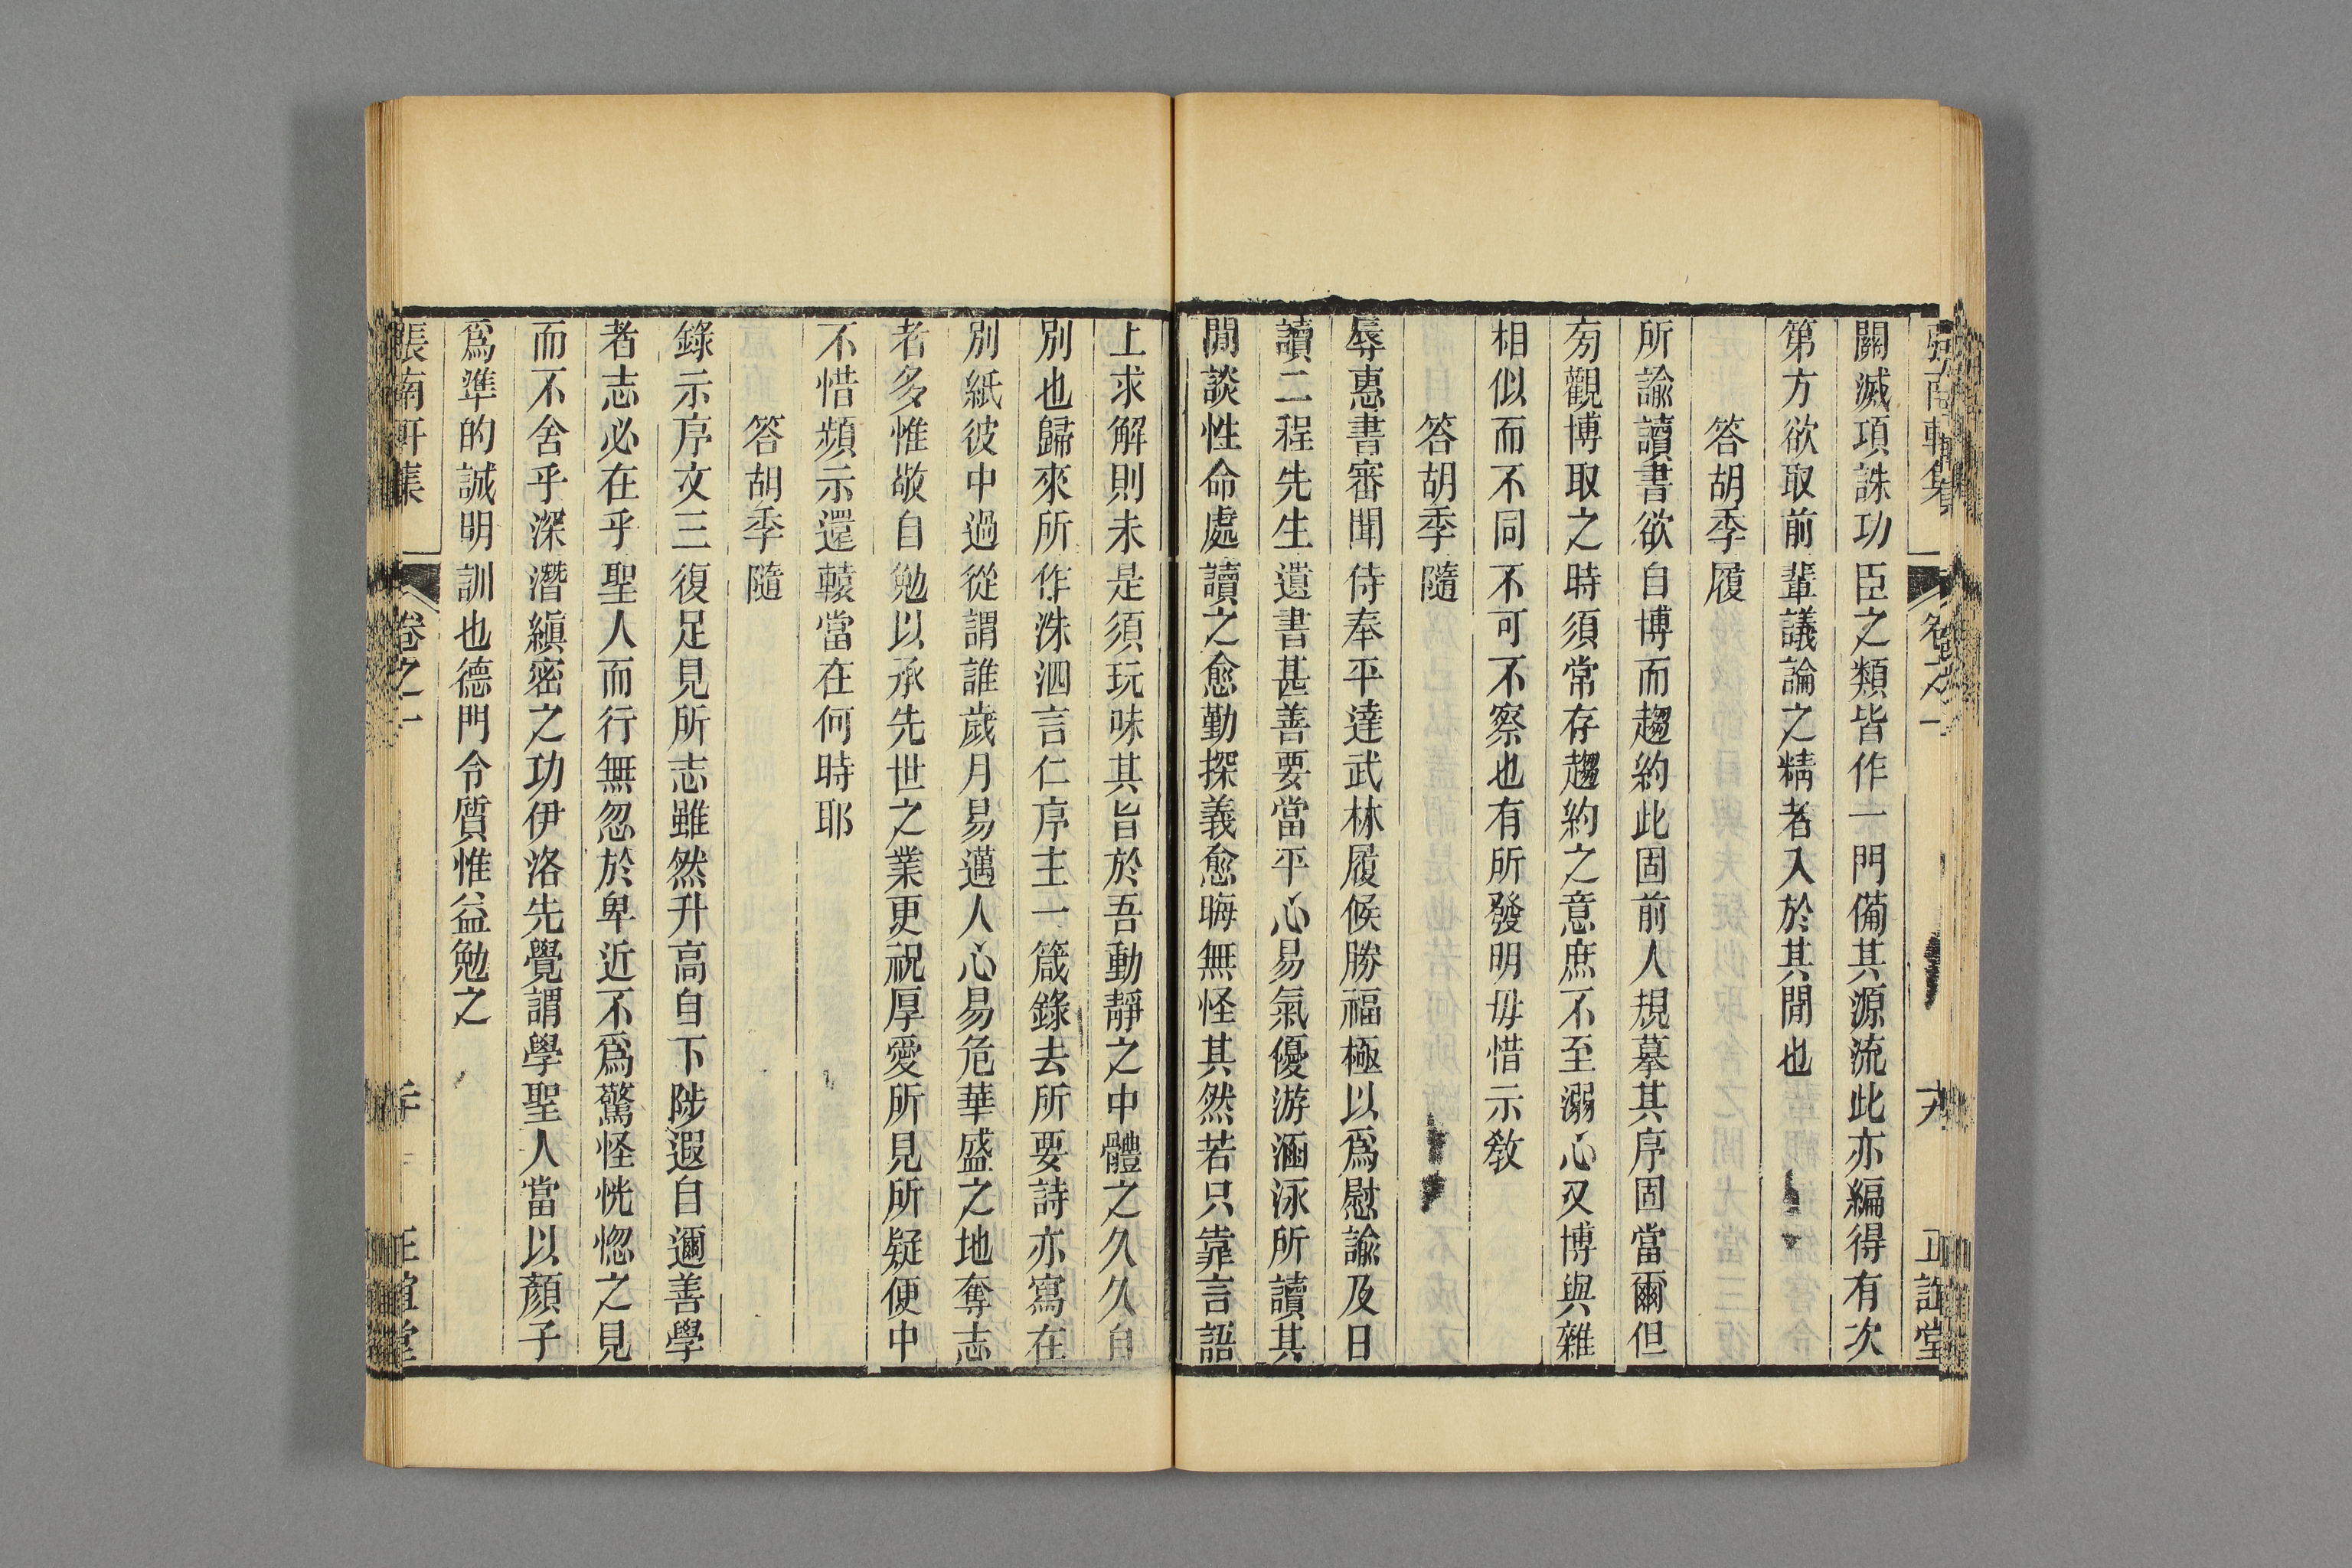 關滅項誅功臣之類皆作一門備其源流此亦編得有次
第方欲取前輩議論之精者入於其閒也
答胡季履
所諭讀書欲自博而趨約此固前人規摹其序固當爾但
旁觀博取之時須常存趨約之意庶不至溺心又博與雜
相似而不同不可不察也有所發明毋惜示敎
答胡季隨
辱惠書審聞侍奉平達武林履候勝福極以爲慰諭及日
讀二程先生遺書甚善要當平心易氣優游涵泳所讀其
閒談性命處讀之愈勤探義愈晦無怪其然若只靠言語
上求解則未是須玩味其旨於吾動靜之中體之久久自
別也歸來所作洙泗言仁序主一箴錄去所要詩亦寫在
別紙彼中過從謂誰歲月易邁人心易危華盛之地奪志
者多惟敬自勉以承先世之業更祝厚愛所見所疑便中
不惜頻示還轅當在何時耶
答胡季隨
錄示序文三復足見所志雖然升高自下陟遐自邇善學
者志必在乎聖人而行無忽於卑近不爲驚怪恍惚之見
而不舍乎深潛縝密之功伊洛先覺謂學聖人當以顏子
爲準的誠明訓也德門令質惟益勉之
張南軒集 卷之一 正誼堂